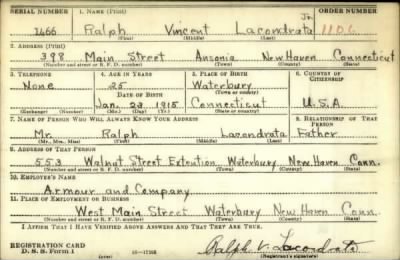 SERIAL NUMBER 1. NAME (Print) ORDER NUMBER
1466 Ralph Vincent Lacondrata Jr. 1106
(First) (Middle) (Last)
2. ADDRESS (Print)
398 Main Street Ansonia New Haven Connecticut
(Number and street or R. F. D. number) (Town) (County) (State)
3. TELEPHONE 4. AGE IN YEARS 5. PLACE OF BIRTH 6. COUNTRY OF CITIZENSHIP
None 25 Waterbury
DATE OF BIRTH (Town or county)
Jan. 23 1915 Connecticut U.S.A.
(Exchange) (Number) (Mo.) (Day) (Yr.) (State or country)
7. NAME OF PERSON WHO WILL ALWAYS KNOW YOUR ADDRESS 8. RELATIONSHIP OF THAT PERSON
Mr. Ralph Lacondrata Father
(Mr., Mrs., Miss) (First) (Middle) (Last)
9. ADDRESS OF THAT PERSON
553 Walnut Street Extention Waterbury New Haven Conn.
(Number and street or R. F. D. number) (Town) (County) (State)
10. EMPLOYER'S NAME
Armour and Company
11. PLACE OF EMPLOYMENT OR BUSINESS
West Main Street Waterbury New Haven Conn.
(Number and street or R. F. D. number) (Town) (County) (State)
I AFFIRM THAT I HAVE VERIFIED ABOVE ANSWERS AND THAT THEY ARE TRUE.
REGISTRATION CARD
D. S. S. Form 1 Ralph V. Lacondrata
(Registrant's signature)